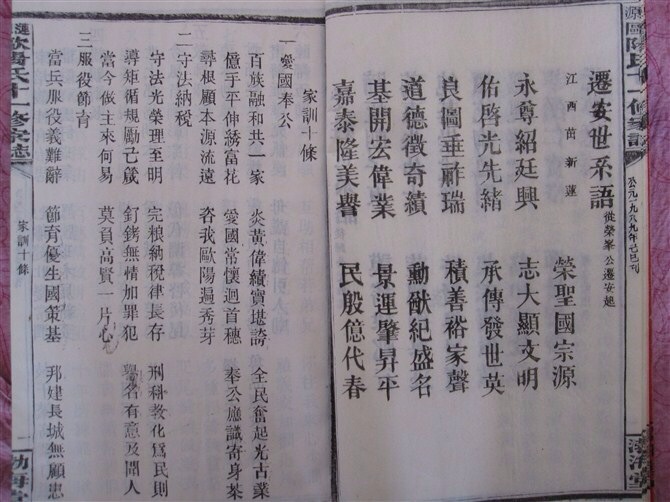 遷安世系語 從榮峯公遷安起
江西苗新蓮
榮聖國宗源
永尊紹廷興 志大顯文明
佑啓光先緒 承傳發世英
良圖垂祚瑞 積善裕家聲
道德徵奇績 勳猷紀盛名
基開宏偉業 景運肇昇平
嘉泰隆美譽 民殷億代春
公元一九八九年己巳刊
家訓十條
一愛國奉公
百族融和共一家 炎黃偉績實堪誇 全民奮起光古業
億手平伸綉富花 愛國常懷迴首穗 奉公應識寄身茶
尋根顧本源流遠 吝我歐陽遍秀芽
二守法納税
守法光榮理至明 完粮納税律長存 刑科教化爲民則
導矩循規勵亡戲 釘銬無情加罪犯 名有意及閒人
當今做主來何易 莫負高賢一片心
三服役節育
當兵服役義難辭 節育優生國策基 邦建長城無顧忠
家訓十條